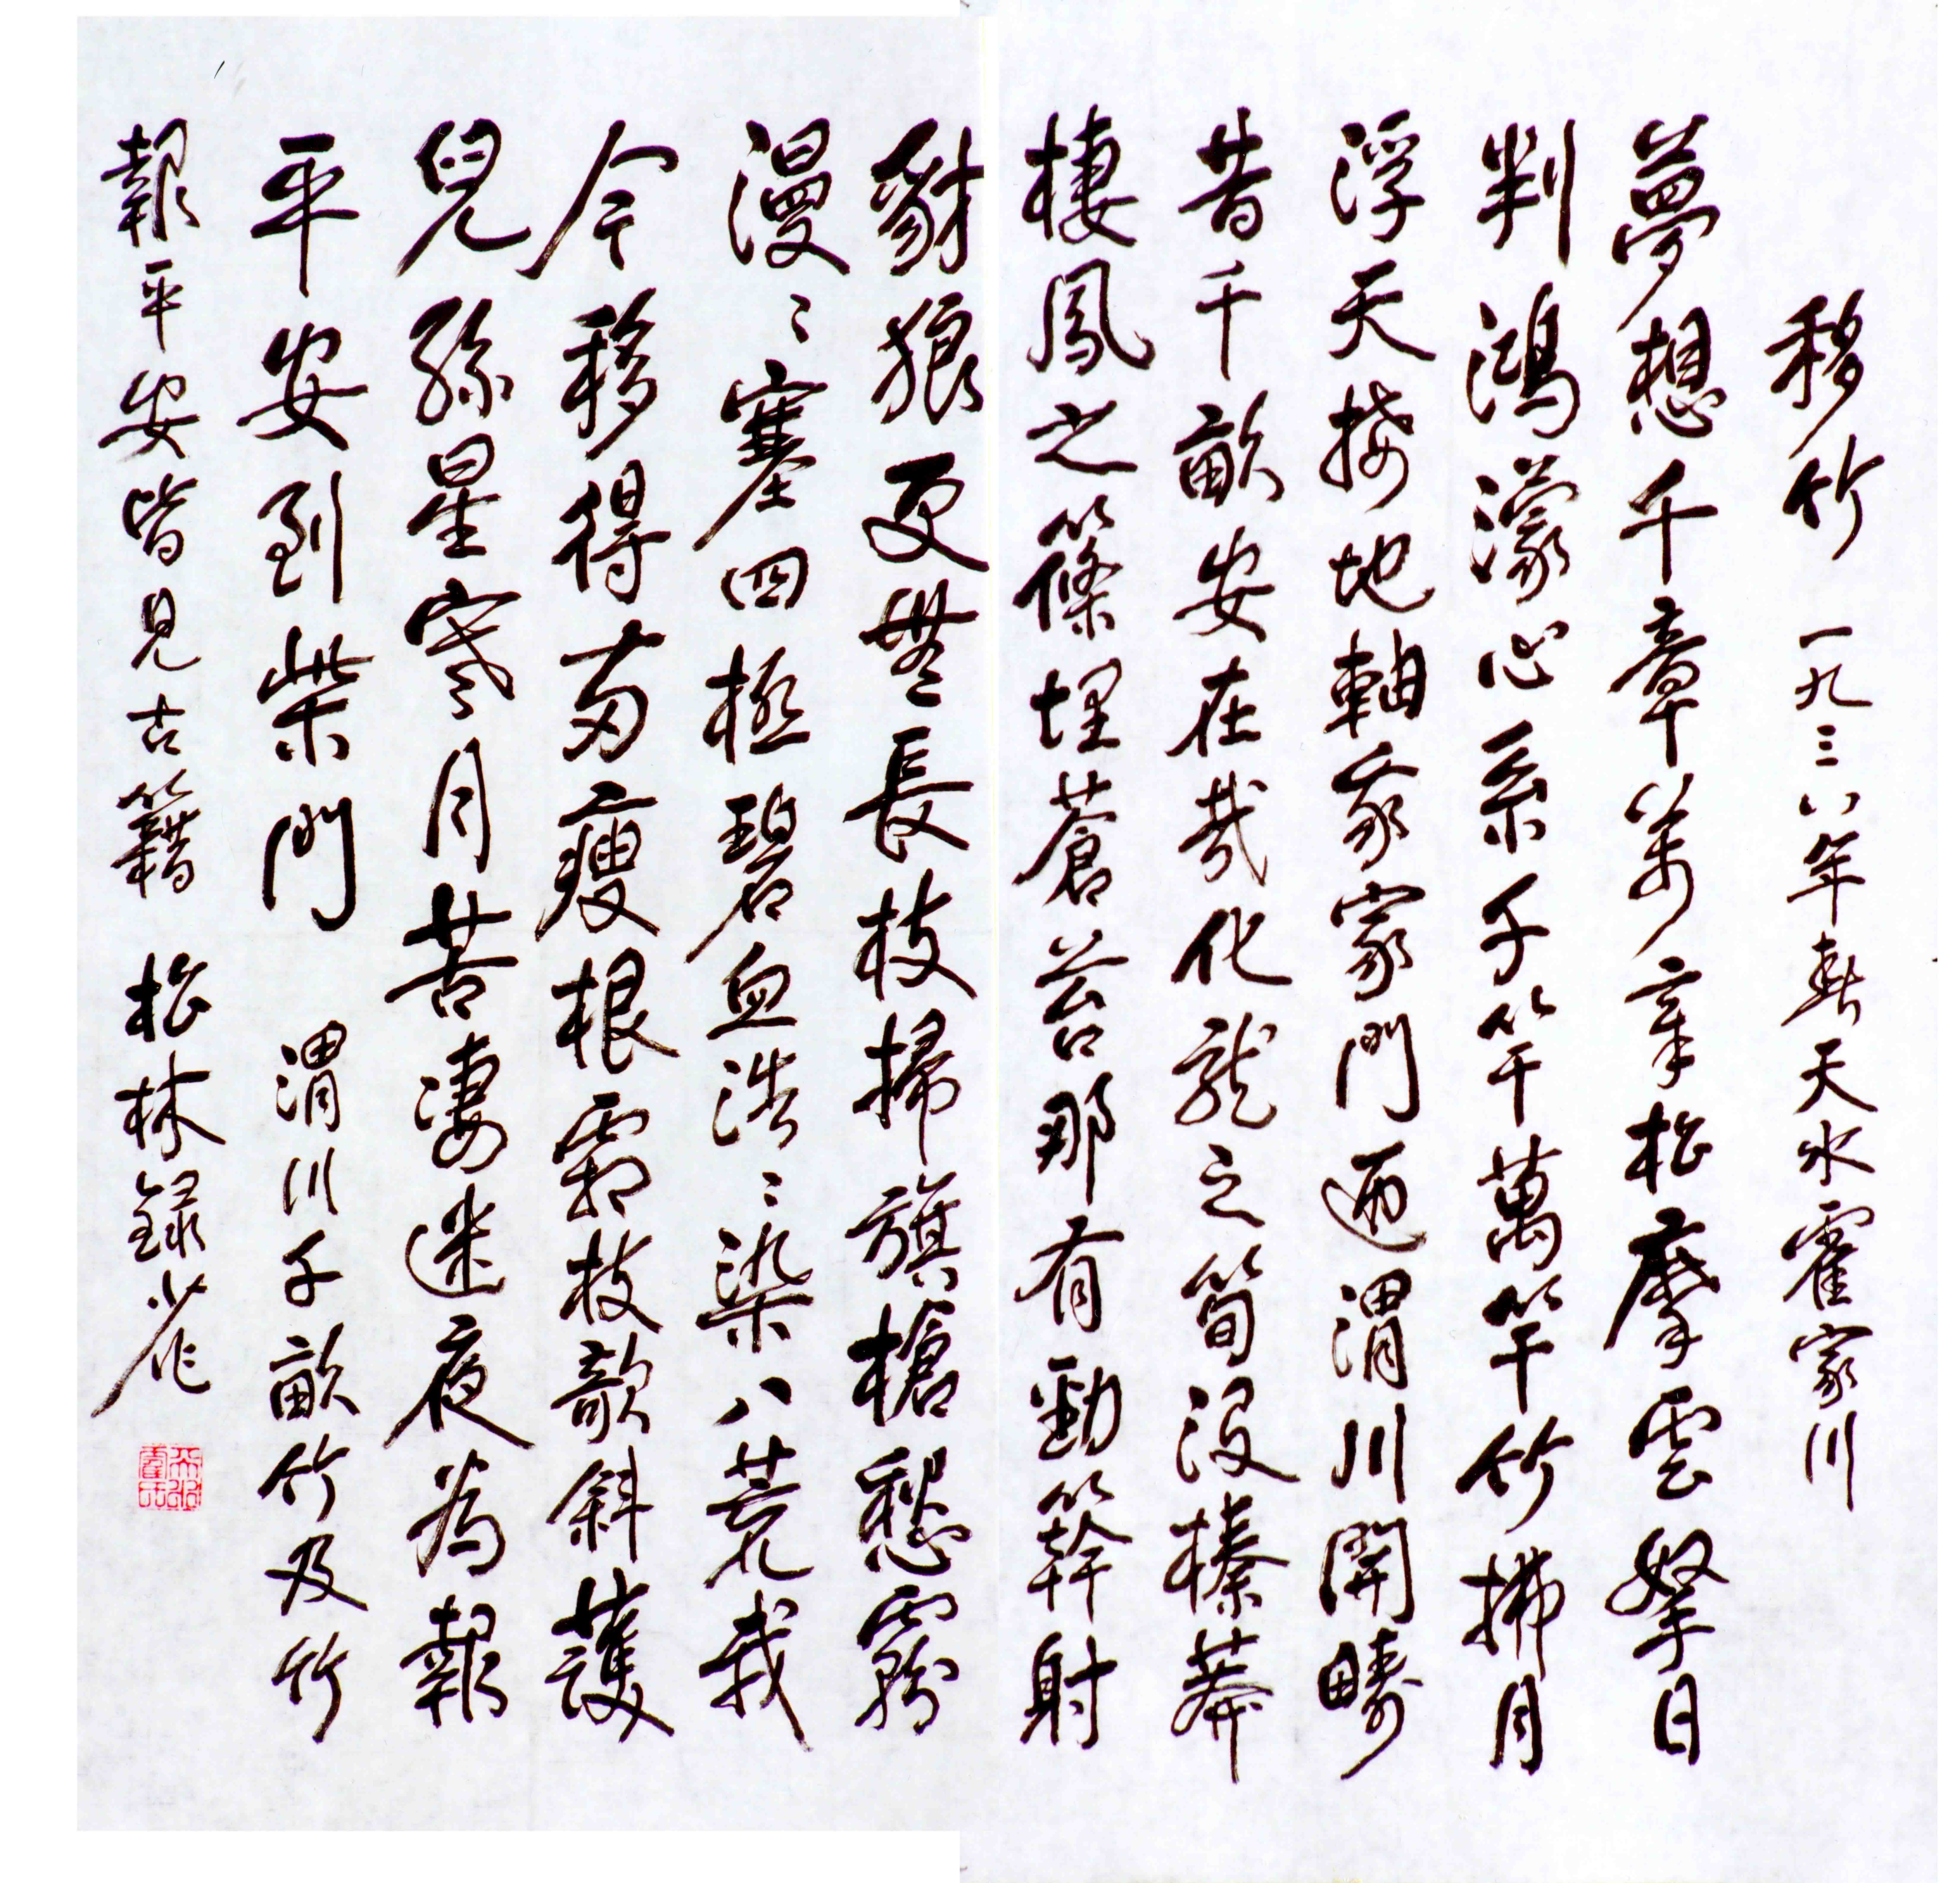 移竹 一九三八年春天水霍家川
夢想千章萬章松摩雲擎日
判鴻濛心系千竿萬竿竹拂月
浮天接地軸我家門迎渭川開疇
昔千畝安在哉化龍之筍沒榛莽
棲鳳之篠埋蒼苔那有勁簳射
豺狼更無長枝掃旗槍愁霧
漫〻塞四極碧血浩〻染八荒我
今移得兩瘦根霜枝欹斜護
兒孫星寒月苦凄迷夜為報
平安到柴門 渭川千畝竹及竹
報平安皆見古籍 松林錄少作